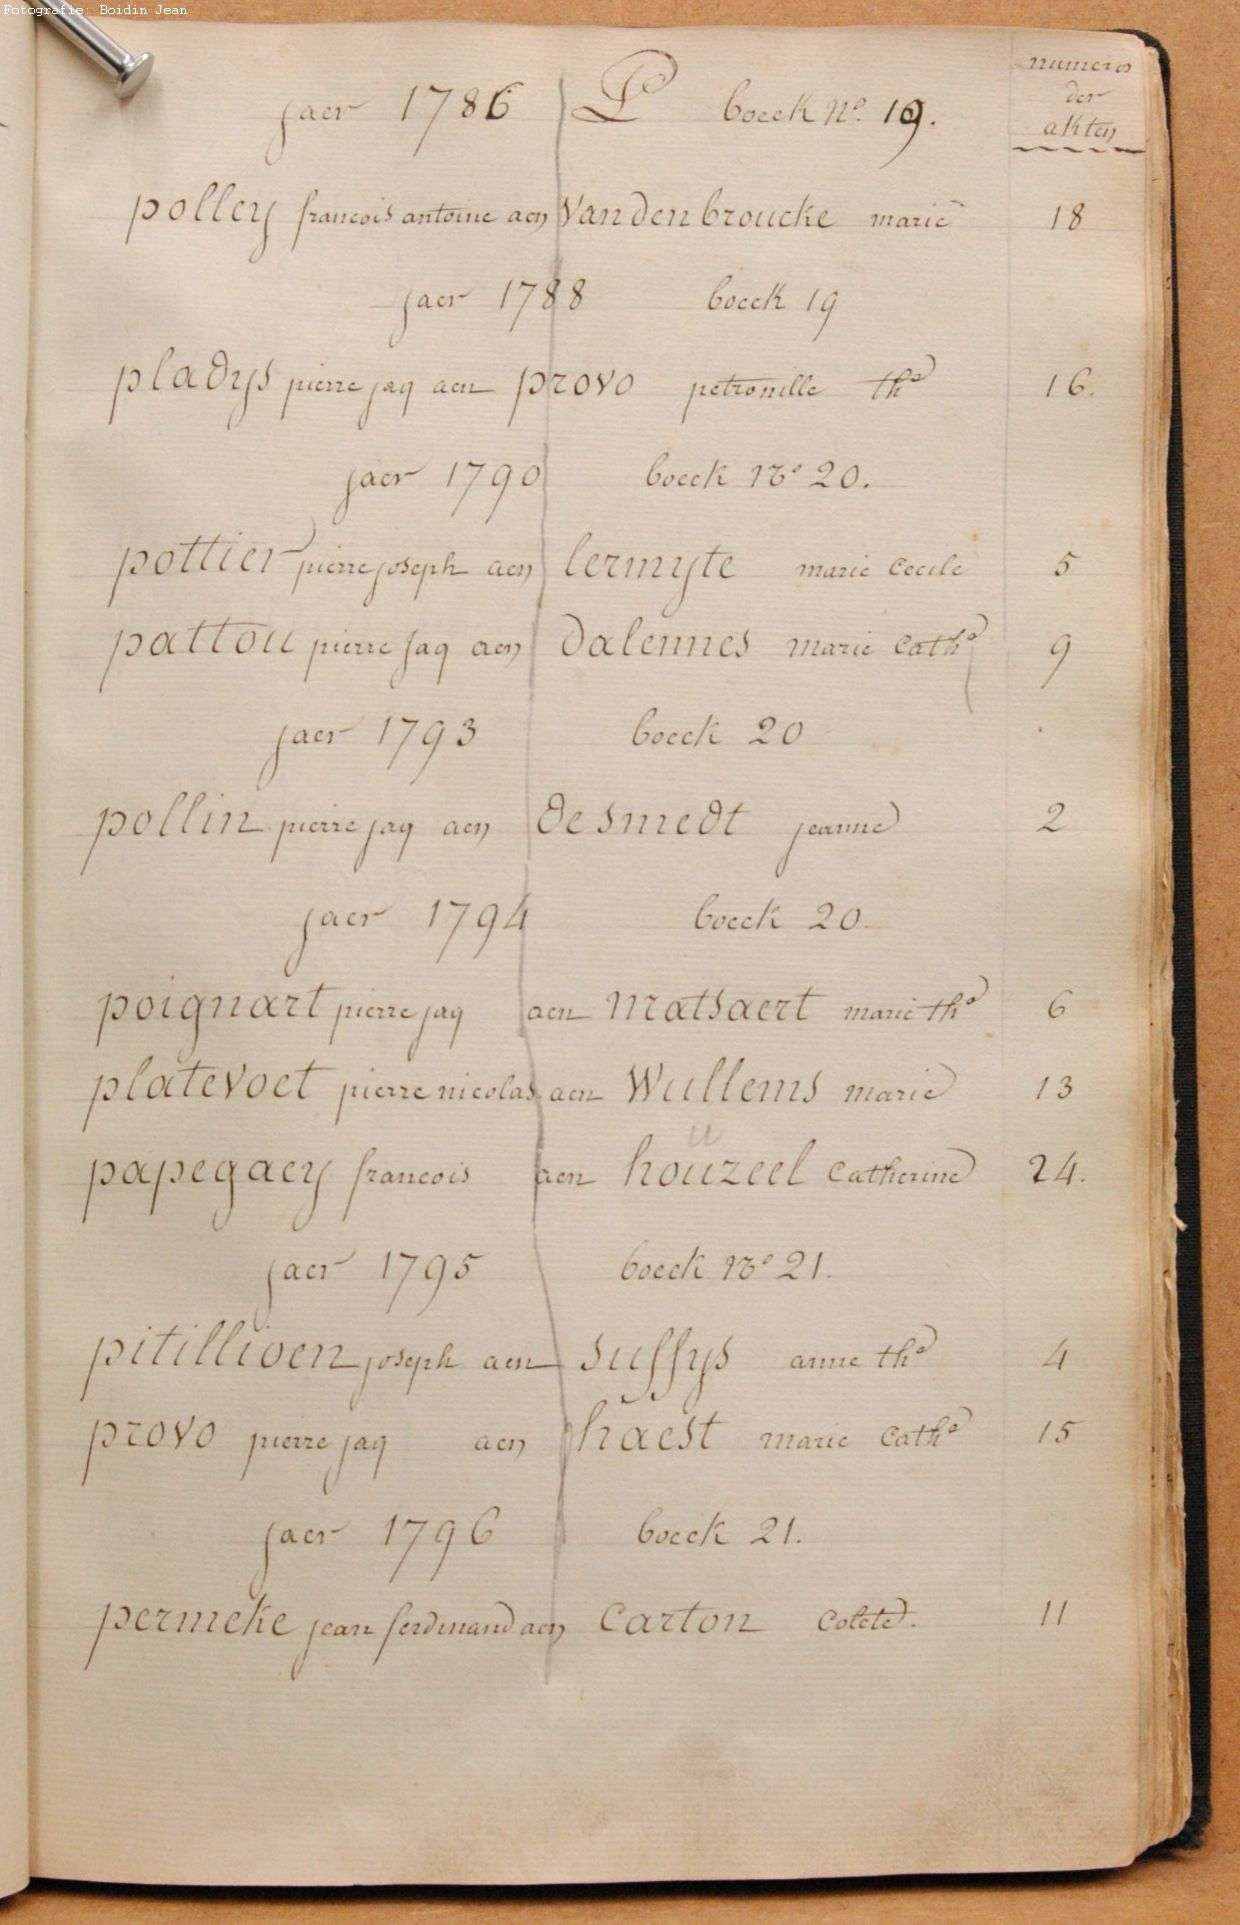 Fotografie: Boidin Jean
numeros
der
akten
jaer 1786 P boeck No. 19.
polley francois antoine aen Vandenbroucke marie 18
jaer 1788 boeck 19
pladys pierre jaq aen provo petronille the 16.
jaer 1790 boeck No 20.
pottier pierre joseph aen lermyte marie Cecile 5
pattou pierre jaq aen dalennes marie Cathe 9
jaer 1793 boeck 20
pollin pierre jaq aen desmedt jeanne 2
jaer 1794 boeck 20
poignart pierre jaq aen matsaert marie the 6
platevoet pierre nicolas aen Wullems marie 13
u
papegaey francois aen houzeel Catherine 24.
jaer 1795 boeck No 21.
pitillioen joseph aen suffys anne the 4
provo pierre jaq aen haest marie Cathe 15
jaer 1796 boeck 21.
permeke jean ferdinand aen Carton Colete. 11